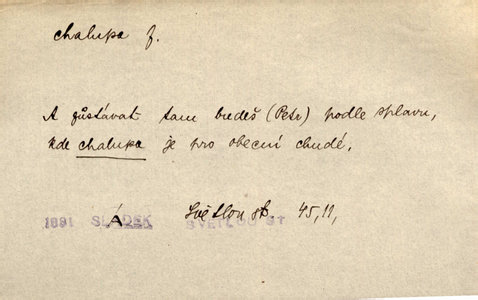 chalupa f.
A zůstávat tam budeš (Petr) podle splavu,
kde chalupa je pro obecní chudé.
1891 SLÁDEK SVĚTLOU ST Světlou st. 45,11,